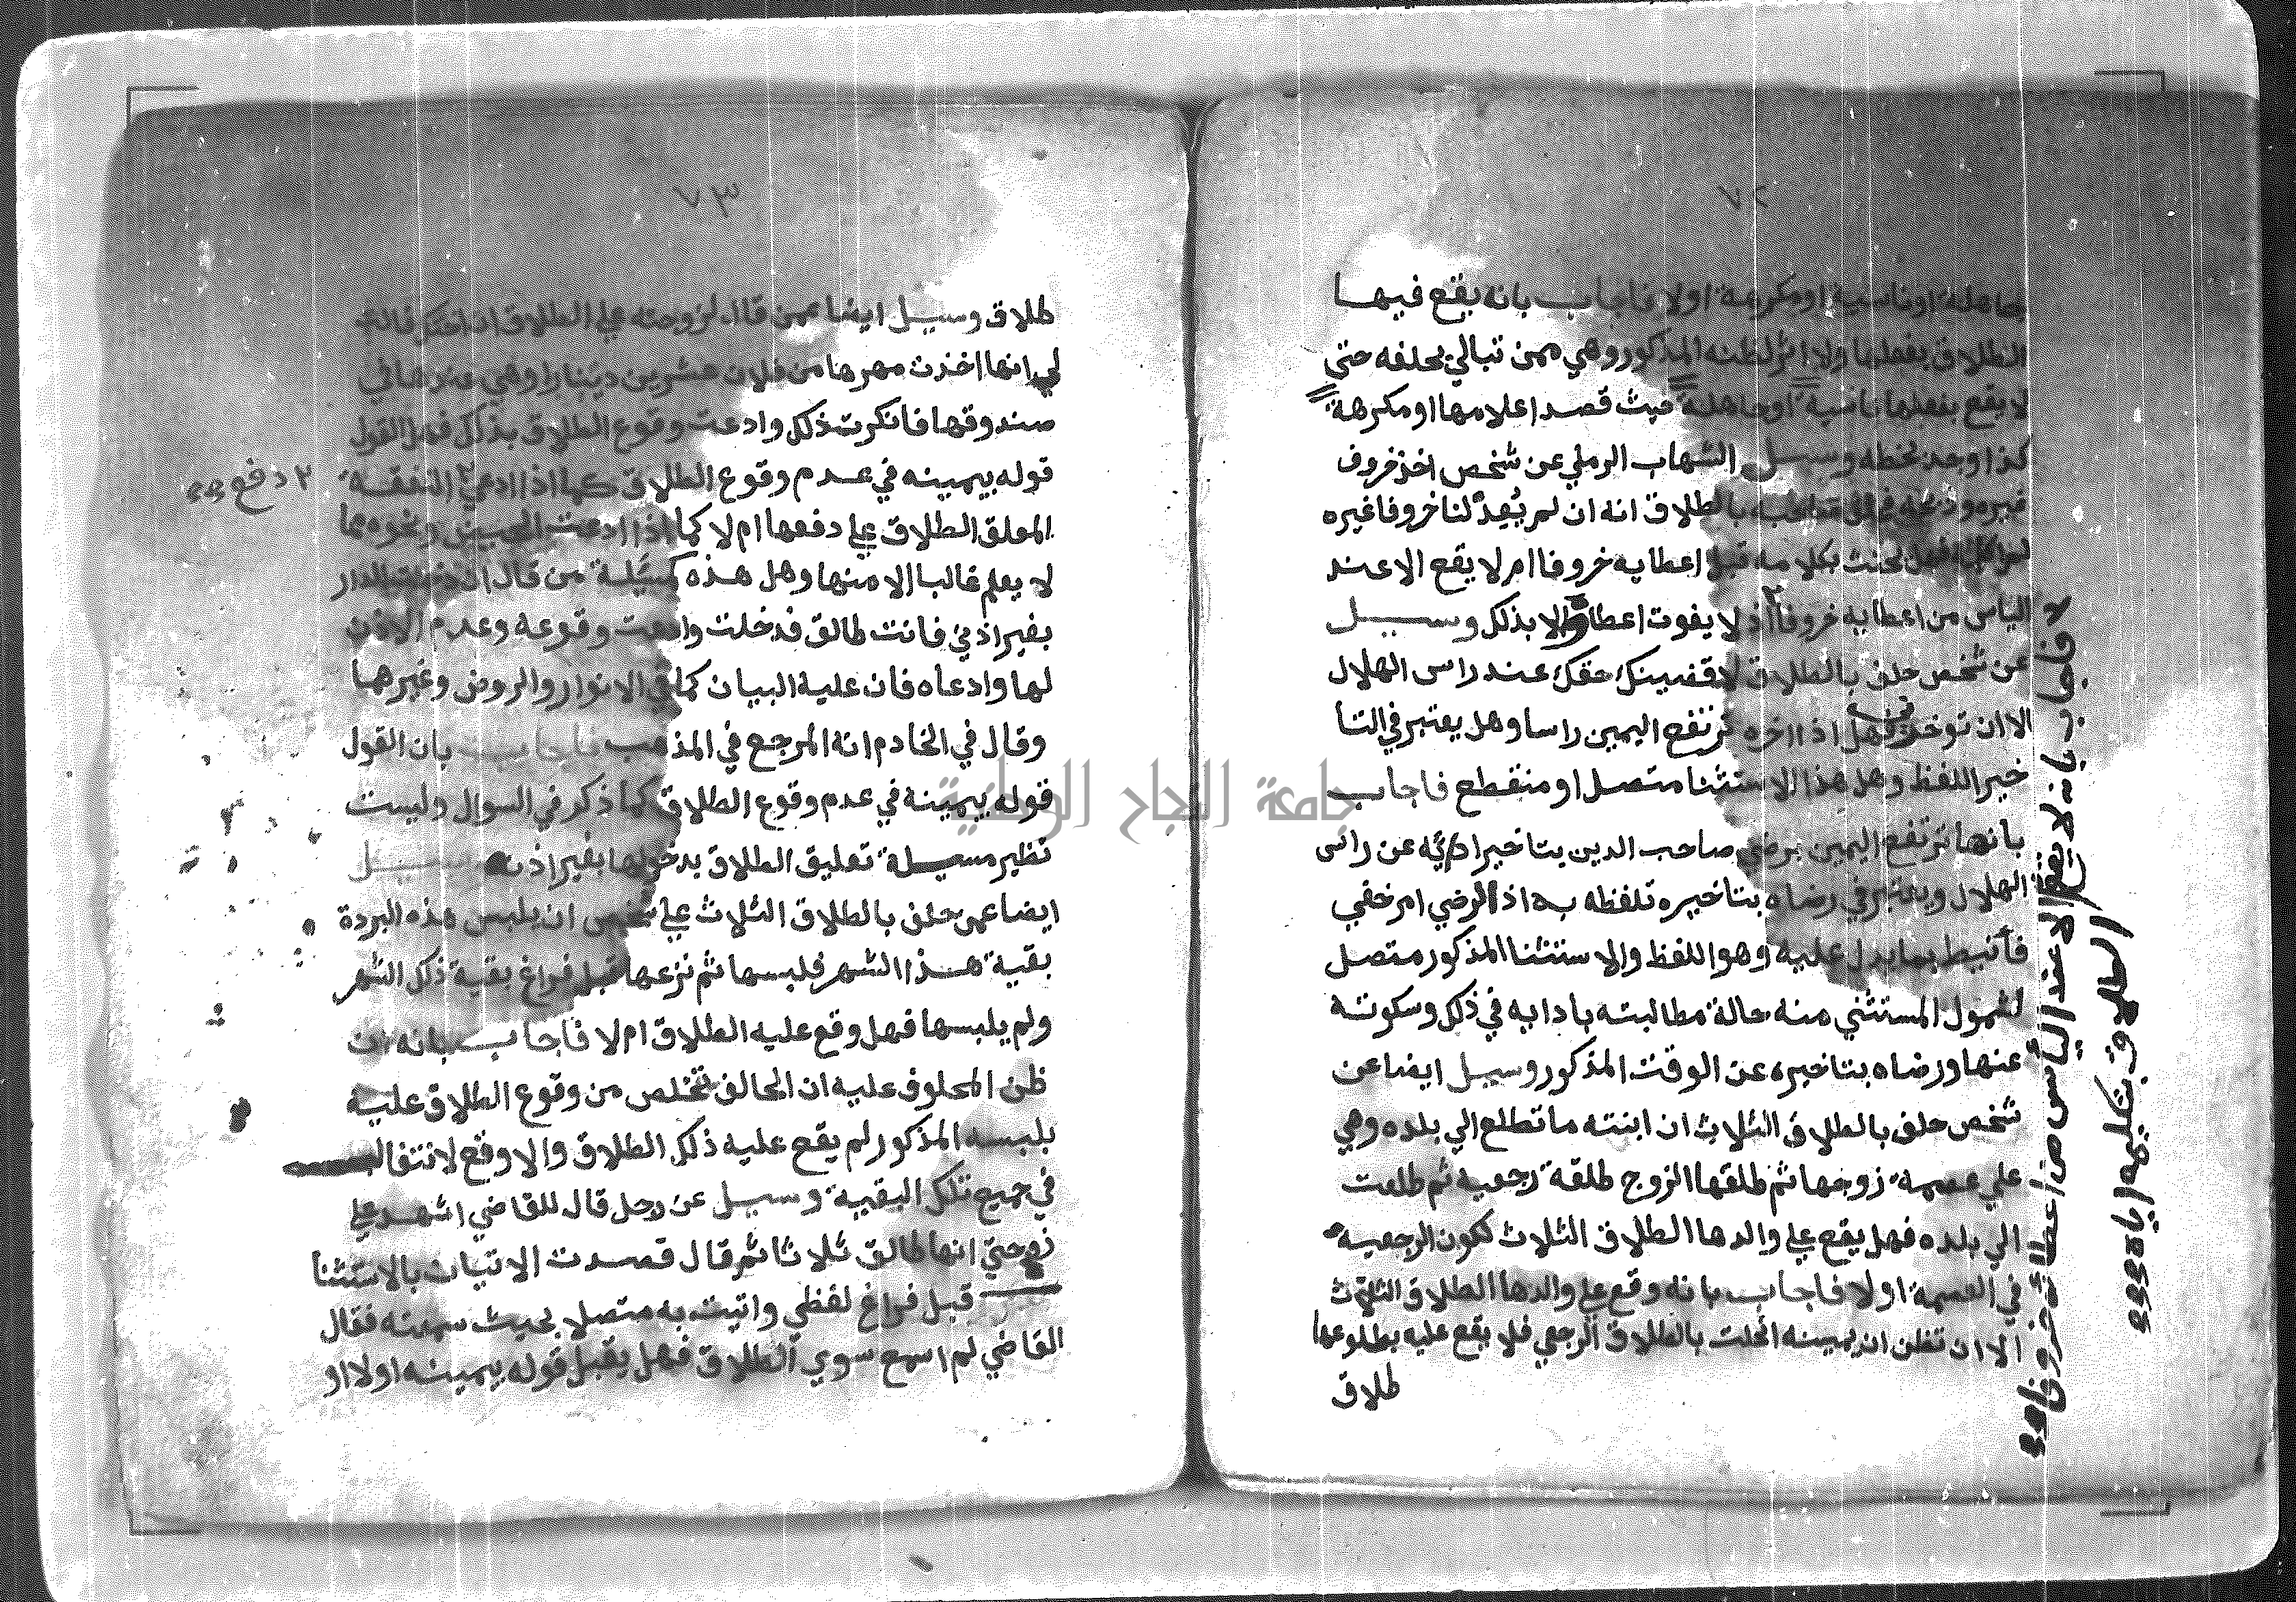 ٧٢
جاهلة او ناسية او مكرهة اولا فاجاب بانه يقع فيها
الطلاق بفعلها ولا اثر لظنه المذكور وهي ممن تبالي بحلفه حتى
لا يقع بفعلها ناسية او جاهلة حيث قصد اعلامها او مكرهة
كذا وجد بخطه وسيل الشهاب الرملي عن شخص اخذ خروف
غيره وذبحه بالطلاق انه ان لم يُعِدْ لنا خروفا غيره
يحنث بكلامه قبل اعطايه خروفا ام لا يقع الا عند
الياس من اعطايه خروفا اذ لا يفوت اعطاوه الا بذلك وسيل
عن شخص حلف بالطلاق لاقضينك حقك عند راس الهلال
الا ان توخرني فهل اذا اخره ترتفع اليمين راسا وهل يعتبر في التا
خير اللفظ وهل هذا الاستثنا متصل او منقطع فاجاب
بانها ترتفع اليمين برضي صاحب الدين بتاخير ادائه عن راس
الهلال ويعتبر في رضاه بتاخيره تلفظه به اذ الرضي امر خفي
فانيط بما يدل عليه وهو اللفظ والاستثنا المذكور متصل
لشمول المستثني منه حالة مطالبته بادايه في ذلك وسكوته
عنها ورضاه بتاخيره عن الوقت المذكور وسيل ايضا عن
شخص حلف بالطلاق الثلاث ان ابنته ما تطلع الي بلده وهي
علي عصمة زوجها ثم طلقها الزوج طلقة رجعيه ثم طلعت
الي بلده فهل يقع علي والدها الطلاق الثلاث لكون الرجعية
في العصمة اولا فاجاب بانه وقع علي والدها الطلاق الثلاث
الا ان تظن ان يمينه انحلت بالطلاق الرجعي فلا يقع عليه بطلوعها
طلاق
فاجاب بانه لا يقع الا عند الياس من اعطائه خروفا
الطلاق بتكليمه اياه
٧٣
طلاق وسيل ايضا عمن قال لزوجته علي الطلاق
لي انها اخذت مهرها من فلان عشرين دينارا وهي عندها في
صندوقها فانكرت ذلك وادعت وقوع الطلاق بذلك فهل القول
قوله بيمينه في عدم وقوع الطلاق كما اذا ادعي النفقة
٢ دفع
المعلق الطلاق علي دفعها ام لا كما اذا ادعت الحيض ونحوه مما
لا يعلم غالبا الا منها وهل هذه كمسئلة من قال ان خرجت الدار
بغير اذني فانت طالق فدخلت وادعت وقوعه وعدم الاذن
لها وادعاه فان علية البيان كما في الانوار والروض وغيرهما
وقال في الخادم انه المرجح في المذهب فاجاب بان القول
قوله بيمينة في عدم وقوع الطلاق كما ذكر في السوال وليست
نظير مسيلة تعليق الطلاق بدخولها بغير اذنه وسيل
ايضا عمن حلف بالطلاق الثلاث علي شخص ان يلبس هذه البردة
بقية هذا الشهر فلبسها ثم نزعها قبل فراغ بقية ذلك الشهر
ولم يلبسها فهل وقع عليه الطلاق ام لا فاجاب بانه ان
ظن المحلوف عليه ان الحالف تخلص من وقوع الطلاق عليه
بلبسه المذكور لم يقع عليه ذلك الطلاق والا وقع لانتفا
في جميع تلك البقية وسيل عن رجل قال للقاضي اشهد علي
زوجتي انها طالق ثلاثا ثم قال قصدت الاتيان بالاستثنا
قبل فراغ لفظي واتيت به متصلا بحيث سمعته فقال
القاضي لم اسمع سوي الطلاق فهل يقبل قوله بيمينه اولا او
جامعة النجاح الوطنية